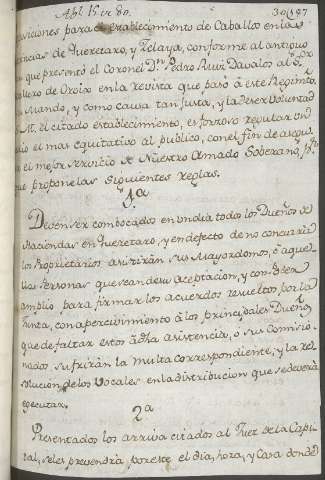 Abl 15 de 80. 30 197
visiones para el establecimiento de Caballos en las
incias de Queretaro, y Zelaya, conforme al antiguo
que presentó el Coronel Dn Pedro Ruvi Davalos al Sor
allero de Croix en la revista que pasó á este Regimto
su Mando, y como causa tan justa, y la Pe Voluntad
S. M. el citado establecimiento, es forzoso regular un
dio el mas equitativo al publico, con el fin de asegu
el mejor servicio de Nuestro Amado Soberano,
que propone las siguientes reglas.
1.a
Deven ser combocados en un dia todo los Dueños de
Haciendas en Queretaro, y en defecto de no concurrir
los Proprietarios asistirán sus Mayordomos, ó aque
llas Personas que sean de su aceptacion, y con Poder
amplio para firmar los acuerdos resueltos por la
Junta, con apercivimiento á los principales Dueños
que de faltar estos á dha asistencia, ó sus Comisio
nados sufrirán la Multa correspondiente, y la re
solucion de los Vocales en la distribucion que se deverá
egecutar.
2.a
Presentados los arriva citados al Juez de la Capi
tal, se les prevendrá por este el dia, hora, y Casa donde